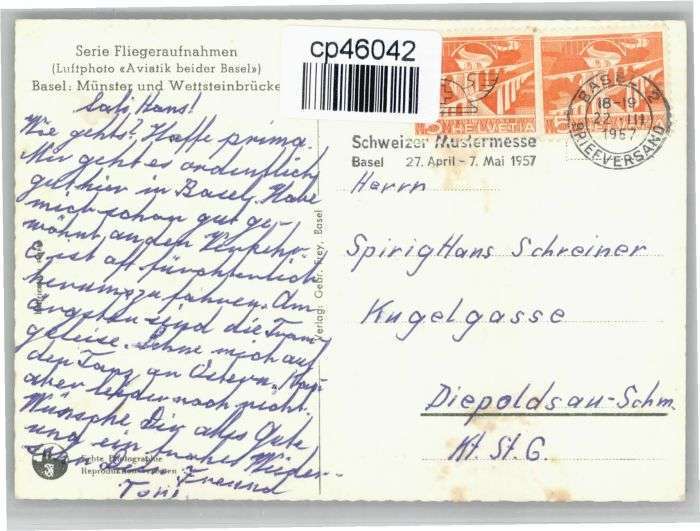 Serie Fliegeraufnahmen
(Luftphoto «Aviatik beider Basel»)
Basel: Münster und Wettsteinbrücke
cp46042
HELVETIA
HELVETIA
BASEL 2
18-19
22. III.
1957
BRIEFVERSAND
Schweizer Mustermesse
Basel 27. April - 7. Mai 1957
Sali Hans!
Wie gehts? Hoffe prima.
Mir geht es ordentlich
gut hier in Basel. Habe
mich schon gut ge-
wöhnt an den Verkehr.
Es ist oft fürchterlich
herumzufahren. Am
ärgsten sind die Tram
geleise. Sehne mich auf
den Tag an Ostern.
aber leider noch nicht.
Wünsche Dir alles Gute
und ein frohes Wieder-
sehn Dein Freund
Toni
Verlag: Gebr. Frey, Basel
Echte Photographie
Reproduktion verboten
Herrn
Spirig Hans Schreiner
Kugelgasse
Diepoldsau-Schm.
Kt. St. G.